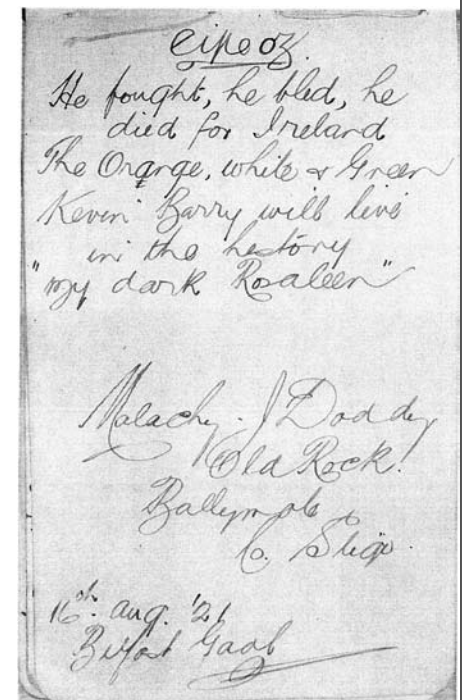 Eire Og.
He fought, he bled, he
died for Ireland
The Orange, white & Green
Kevin Barry will live
in the history
"my dark Rosaleen"
Malachy. J Doddy
Old Rock.
Ballymote
Co. Sligo.
16th. Aug. '21
Belfast Gaol